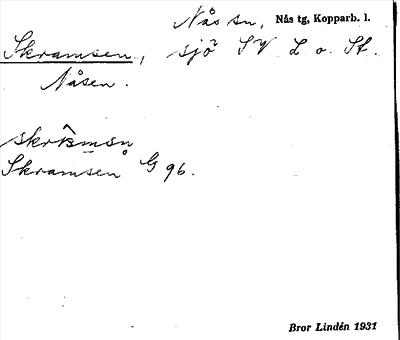 Nås sn, Nås tg, Kopparb. l.
Skramsen, sjö SV L o. St.
Nåsen.
Skramsen G 96.
Bror Lindén 1931